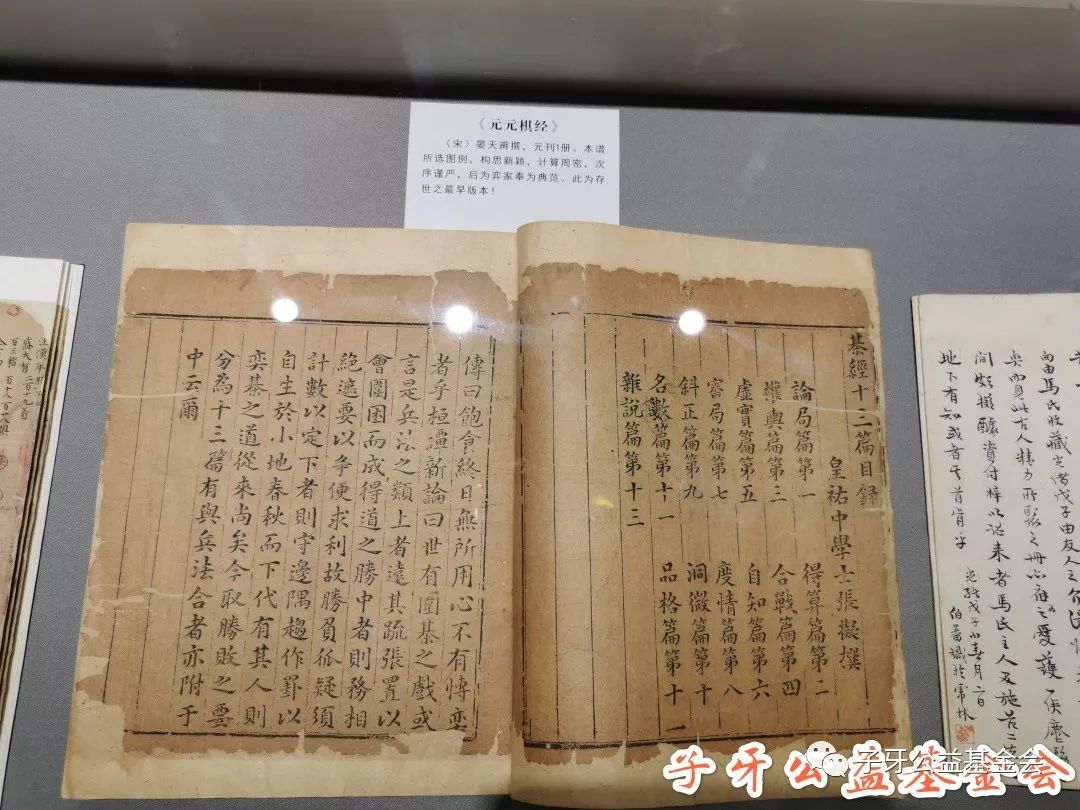 《元元棋经》
（宋）晏天甫撰，元刊1册。本谱
所选图例，构思新颖，计算周密，次
序谨严，后为弈家奉为典范。此为存
世之最早版本！
棊經十三篇目録
皇祐中學士張擬撰
論局篇第一 得算篇第二
權輿篇第三 合戰篇第四
虛實篇第五 自知篇第六
審局篇第七 度情篇第八
斜正篇第九 洞微篇第十
名數篇第十一 品格篇第十二
雜說篇第十三
傳曰飽食終日無所用心不有博奕
者乎桓譚新論曰世有圍棊之戲或
言是兵法之類上者遠其疏張置以
會圍因而成得道之勝中者則務相
絶遮要以争便求利故勝負狐疑須
計數以定下者則守邊隅趨作罫以
自生於小地春秋而下代有其人則
奕棊之道從來尚矣今取勝敗之要
分為十三篇有與兵法合者亦附于
中云爾
向由馬氏收藏光緒戊子由友人之
地下有知或者其首肯乎
光緒戊子小春月二日
子牙公益基金会
子牙公益基金会